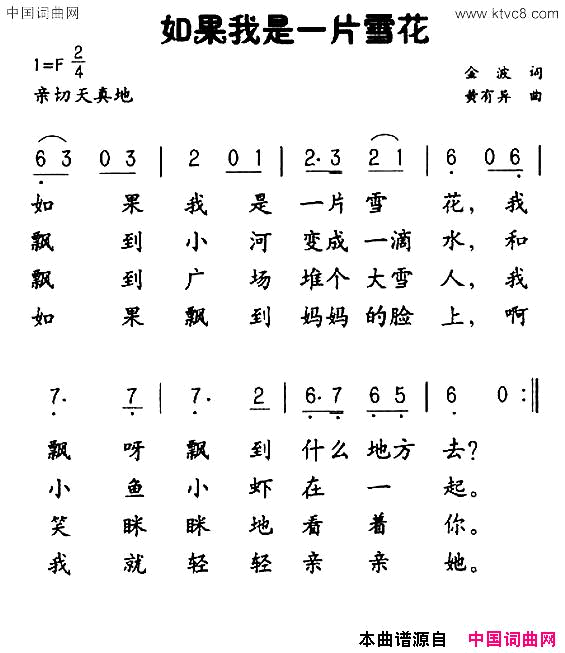 中国词曲网
www.ktvc8.com
如果我是一片雪花
1=F 2/4
金波 词
亲切天真地
黄有异 曲
6 3 0 3 | 2 0 1 | 2· 3 2 1 | 6 0 6 |
如果我是一片雪花，我
飘到小河变成一滴水，和
飘到广场堆个大雪人，我
如果飘到妈妈的脸上，啊
7· 7 | 7· 2 | 6· 7 6 5 | 6 0 :||
飘呀飘到什么地方去?
小鱼小虾在一起。
笑眯眯地看着你。
我就轻轻亲亲她。
本曲谱源自 中国词曲网